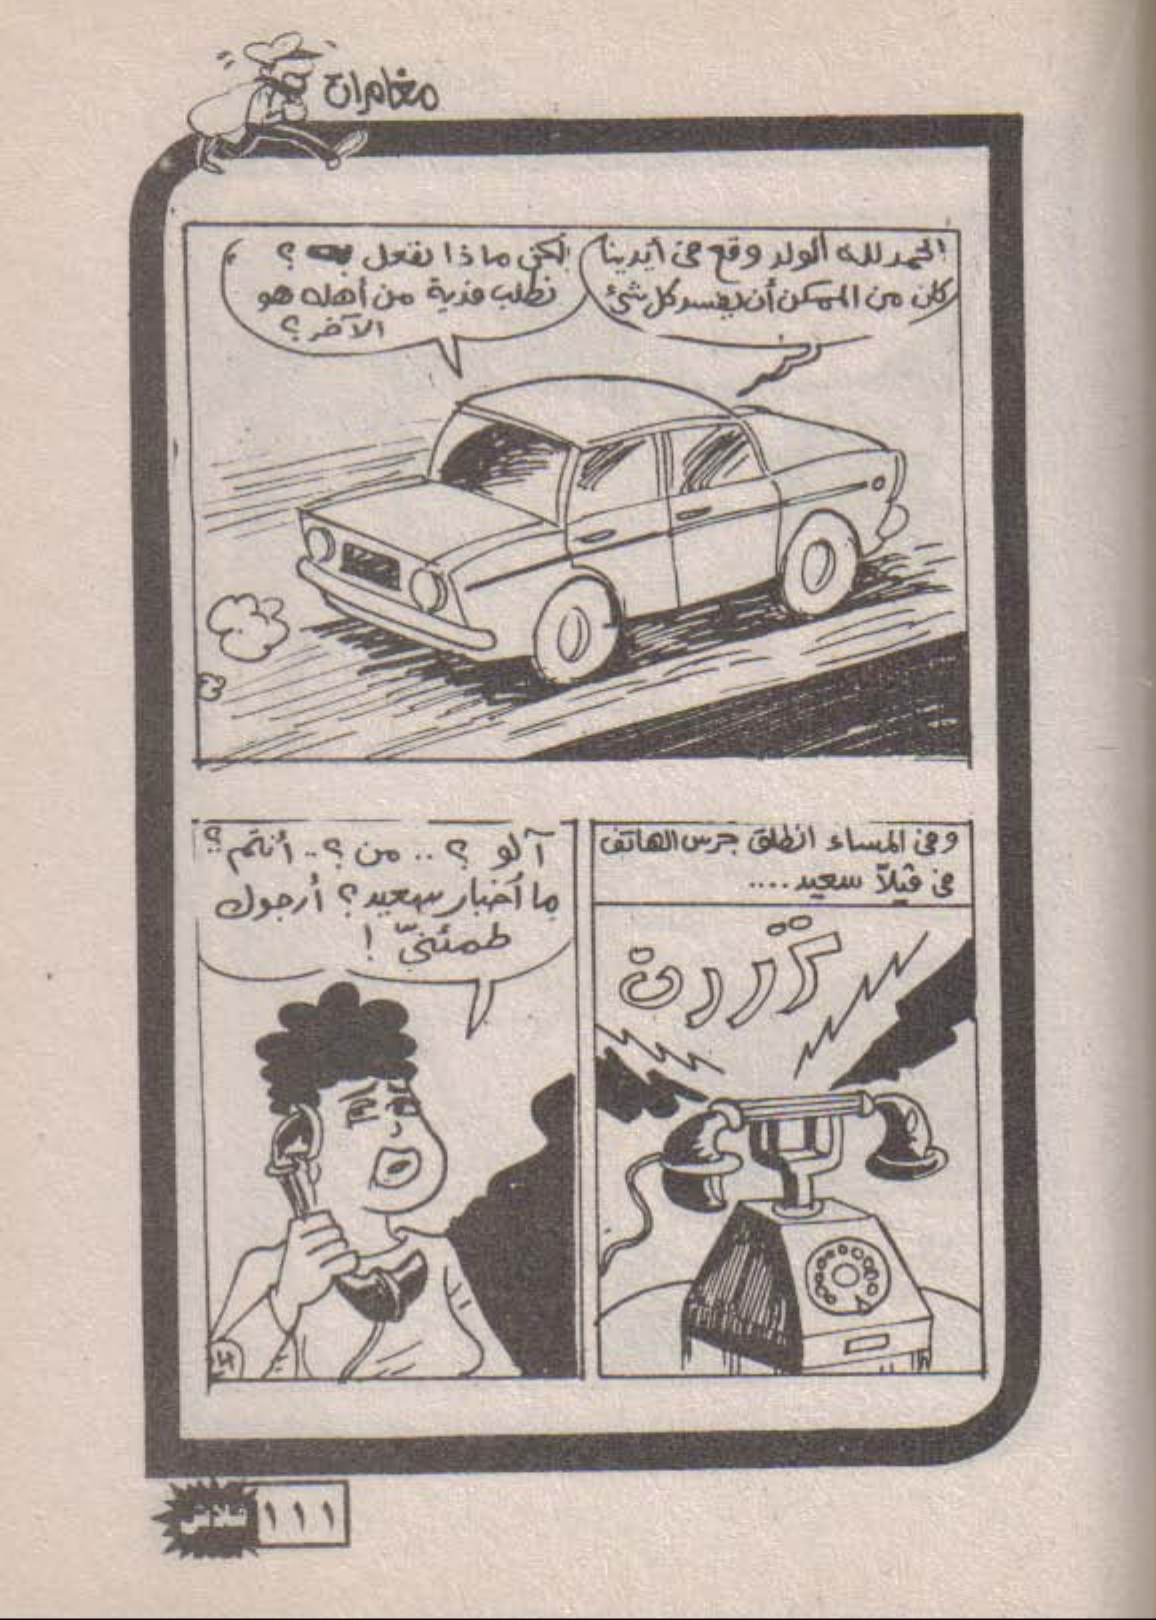 مغامرات
الحمد لله الولد وقع فى أيدينا
كان من الممكن أن يفسد كل شئ
لكن ماذا نفعل به ؟
نطلب فدية من أهله هو
الآخر ؟
وفى المساء انطلق جرس الهاتف
فى ڤيلاّ سعيد ....
تررررن
آلو ؟ .. من ؟ .. أنتم ؟
ما أخبار سعيد ؟ أرجوك
طمئنيّ !
١١١
فلاش